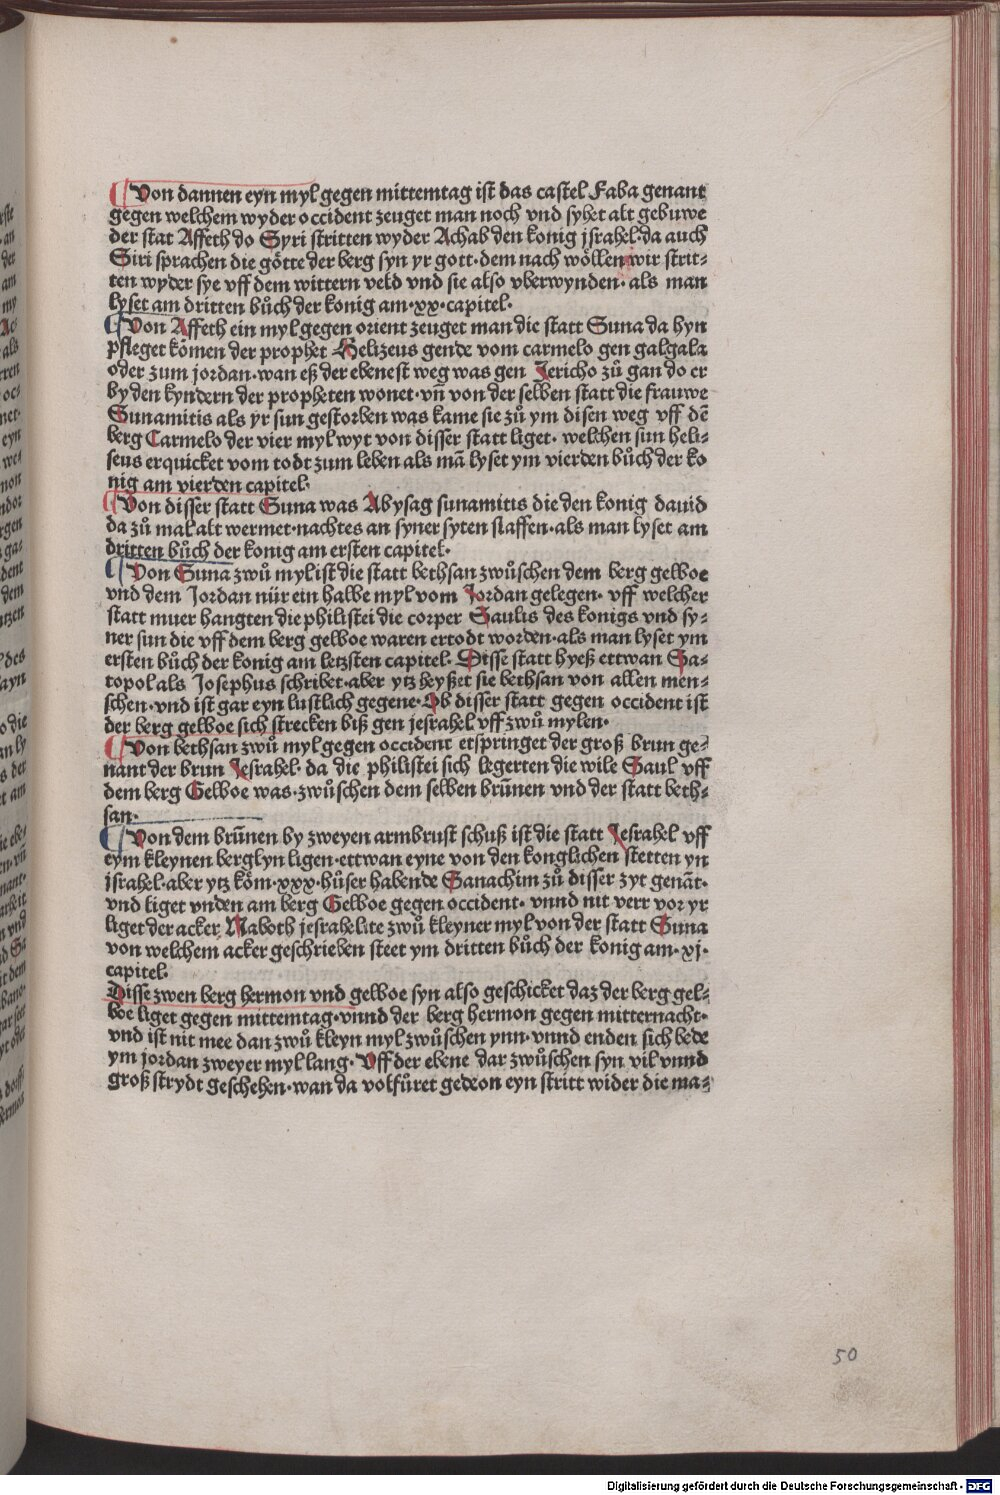 ¶ Von dannen eyn myl gegen mittemtag ist das castel Faba genant
gegen welchem wyder occident zeuget man noch vnd syhet alt gebuwe
der stat Affeth do Syri stritten wyder Achab den konig jsrahel·da auch
Siri sprachen die götte der berg syn yr gott·dem nach wöllen wir strit-
ten wyder sye vff dem wittern veld vnd sie also vberwynden·als man
lyset am dritten bůch der konig am·xx·capitel·
¶ Von Affeth ein myl gegen orient zeuget man die statt Suna da hyn
pfleget kōmen der prophet Helizeus gende vom carmelo gen galgala
oder zum jordan·wan eß der ebenest weg was gen Jericho zů gan do er
by den kyndern der propheten wonet·vn̄ von der selben statt die frauwe
Sunamitis als yr sun gestorben was kame sie zů ym disen weg vff dē
berg Carmelo der vier myl wyt von disser statt liget·welchen sun heli-
seus erquicket vom todt zum leben als mā lyset ym vierden bůch der ko
nig am vierden capitel·
¶ Von disser statt Suna was Abysag sunamitis die den konig dauid
da zů mal alt wermet·nachtes an syner syten slaffen·als man lyset am
dritten bůch der konig am ersten capitel·
¶ Von Suna zwů myl ist die statt bethsan zwůschen dem berg gelboe
vnd dem Jordan nür ein halbe myl vom Jordan gelegen·vff welcher
statt muer hangten die philistei die corper Saulis des konigs vnd sy-
ner sun die vff dem berg gelboe waren ertodt worden·als man lyset ym
ersten bůch der konig am letzsten capitel·Disse statt hyeß ettwan Sa-
topol als Josephus schribet·aber ytz heyßet sie bethsan von allen men-
schen·vnd ist gar eyn lustlich gegene·Ob disser statt gegen occident ist
der berg gelboe sich strecken biß gen jesrahel vff zwů mylen·
¶ Von bethsan zwů myl gegen occident etspringet der groß brun ge-
nant der brun Jesrahel·da die philistei sich legerten die wile Saul vff
dem berg Gelboe was·zwůschen dem selben brünen vnd der statt beth-
san·
¶ Von dem brūnen by zweyen armbrust schuß ist die statt Jesrahel vff
eym kleynen berglyn ligen·ettwan eyne von den konglichen stetten yn
jsrahel·aber ytz kōm·xxx·hůser habende Sanachim zů disser zyt genāt·
vnd liget vnden am berg Gelboe gegen occident·vnnd nit verr vor yr
liget der acker Naboth jesrahelite zwů kleyner myl von der statt Suna
von welchem acker geschrieben steet ym dritten bůch der konig am·xj·
capitel·
Disse zwen berg hermon vnd gelboe syn also geschicket daz der berg gel-
boe liget gegen mittemtag·vnnd der berg hermon gegen mitternacht·
vnd ist nit mee dan zwů kleyn myl zwůschen ynn·vnnd enden sich bede
ym jordan zweyer myl lang·Vff der ebene dar zwůschen syn vil vnnd
groß strydt geschehen·wan da volfüret gedeon eyn stritt wider die ma-
50
Digitalisierung gefördert durch die Deutsche Forschungsgemeinschaft - DFG